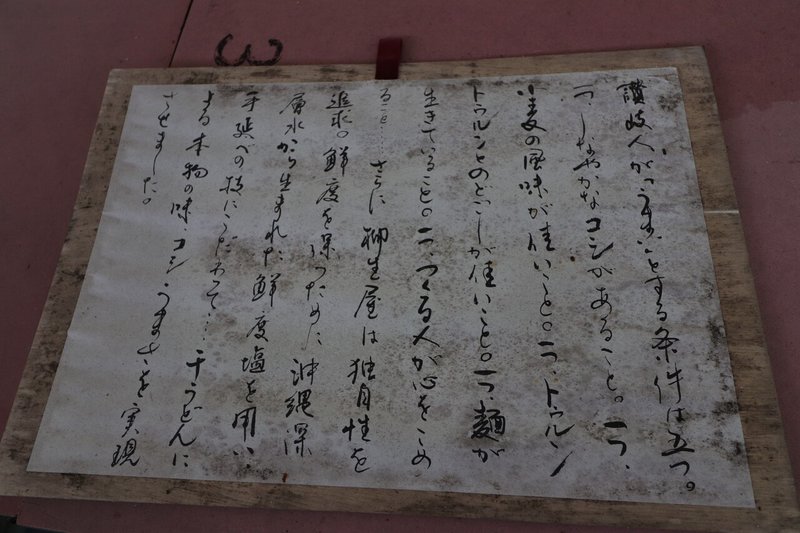 讃岐人がうまいとする条件は五つ。
一つ、しなやかなコシがあること。一つ、
小麦の風味が佳いこと。一つ、トゥルン
トゥルンとのどごしが佳いこと。一つ、麺が
生きていること。一つ、つくる人が心をこめ
ること……さらに柳生屋は独自性を
追求。鮮度を保つために沖縄深
層水から生まれた鮮度塩を用い、
手延べの技にこだわって……干うどんに
よる本物の味、コシ、うまさを実現
させました。